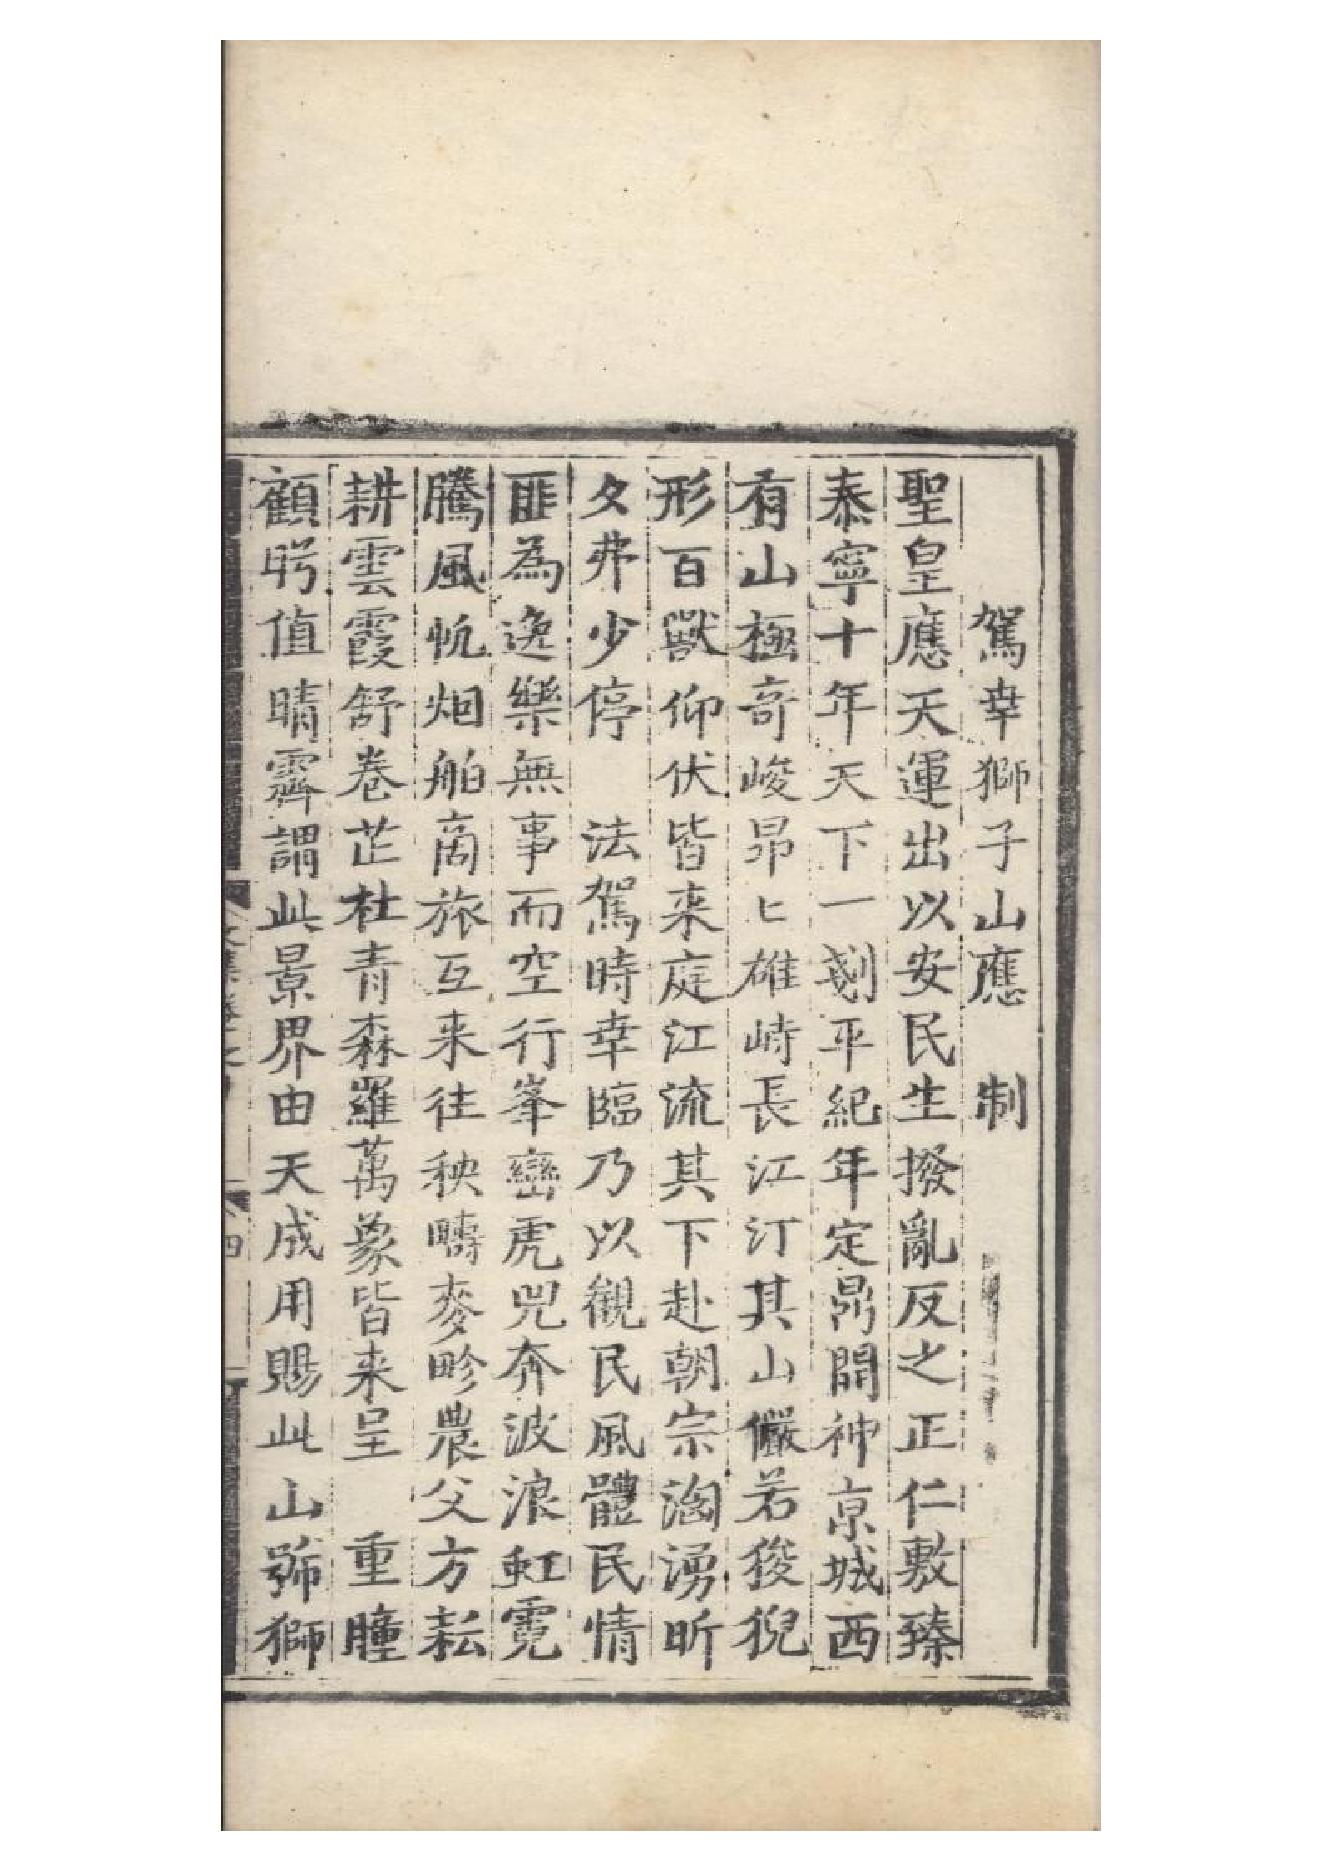 駕幸獅子山應　制
聖皇應天運出以安民生撥亂反之正仁敷臻
泰寧十年天下一剗平紀年定鼎開神京城西
有山極奇峻昂匕雄峙長江汀其山儼若狻猊
形百獸仰伏皆来庭江流其下赴朝宗淘湧昕
夕弗少停　法駕時幸臨乃以觀民風體民情
匪為逸樂無事而空行峯巒虎兕奔波浪虹霓
騰風帆烟舶商旅互来往秧疇麥畛農父方耘
耕雲霞舒卷芷杜青森羅萬象皆来呈　重瞳
顧眄值晴霽謂此景界由天成用賜此山號獅
四